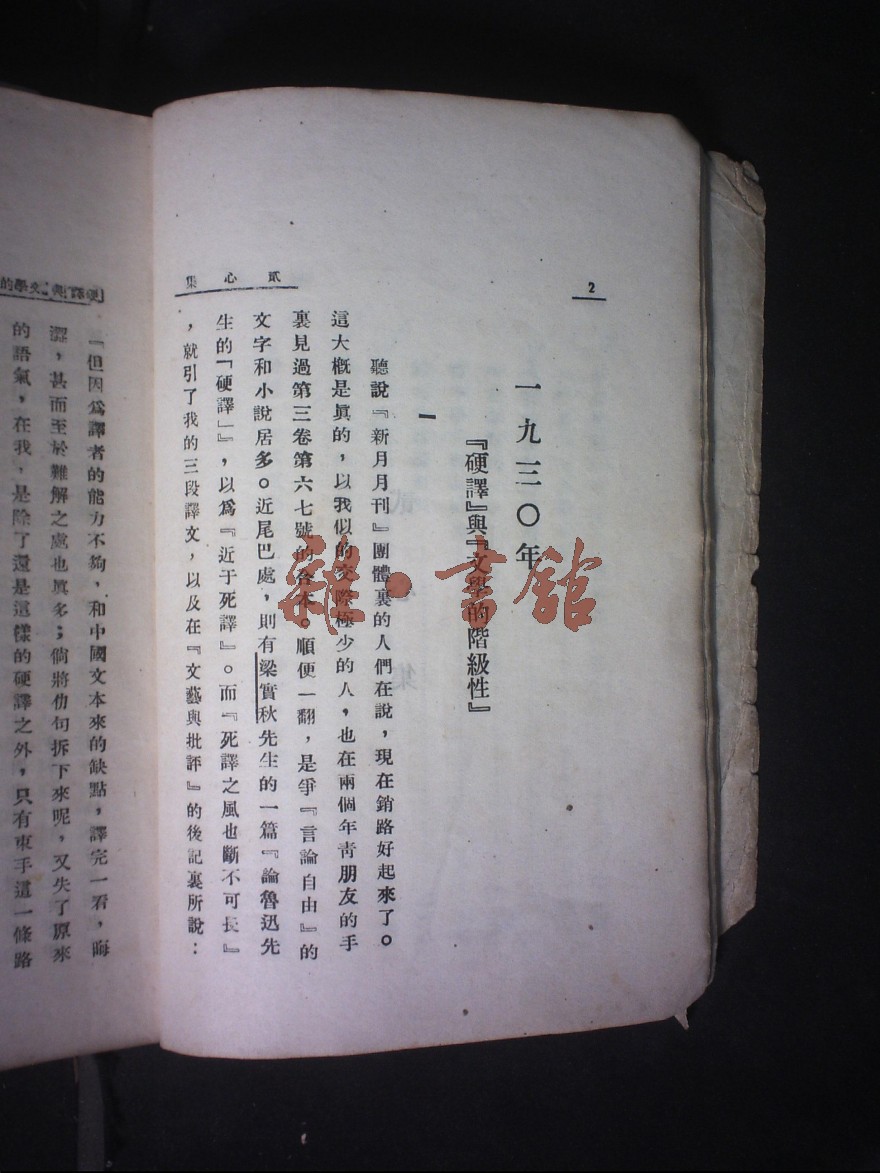 2
貳心集
一九三〇年
『硬譯』與『文學的階級性』
一
聽說『新月月刊』團體裏的人們在說，現在銷路好起來了。
這大概是眞的，以我似的交際極少的人，也在兩個年靑朋友的手
裏見過第三卷第六七號的合本。順便一翻，是爭『言論自由』的
文字和小說居多。近尾巴處，則有梁實秋先生的一篇『論魯迅先
生的「硬譯」』，以爲『近于死譯』。而『死譯之風也斷不可長』
，就引了我的三段譯文，以及在『文藝與批評』的後記裏所說：
『硬譯』與『文學的
『但因爲譯者的能力不夠，和中國文本來的缺點，譯完一看，晦
澀，甚而至於難解之處也眞多；倘將仂句拆下來呢，又失了原來
的語氣，在我，是除了還是這樣的硬譯之外，只有束手這一條路
雜·書館